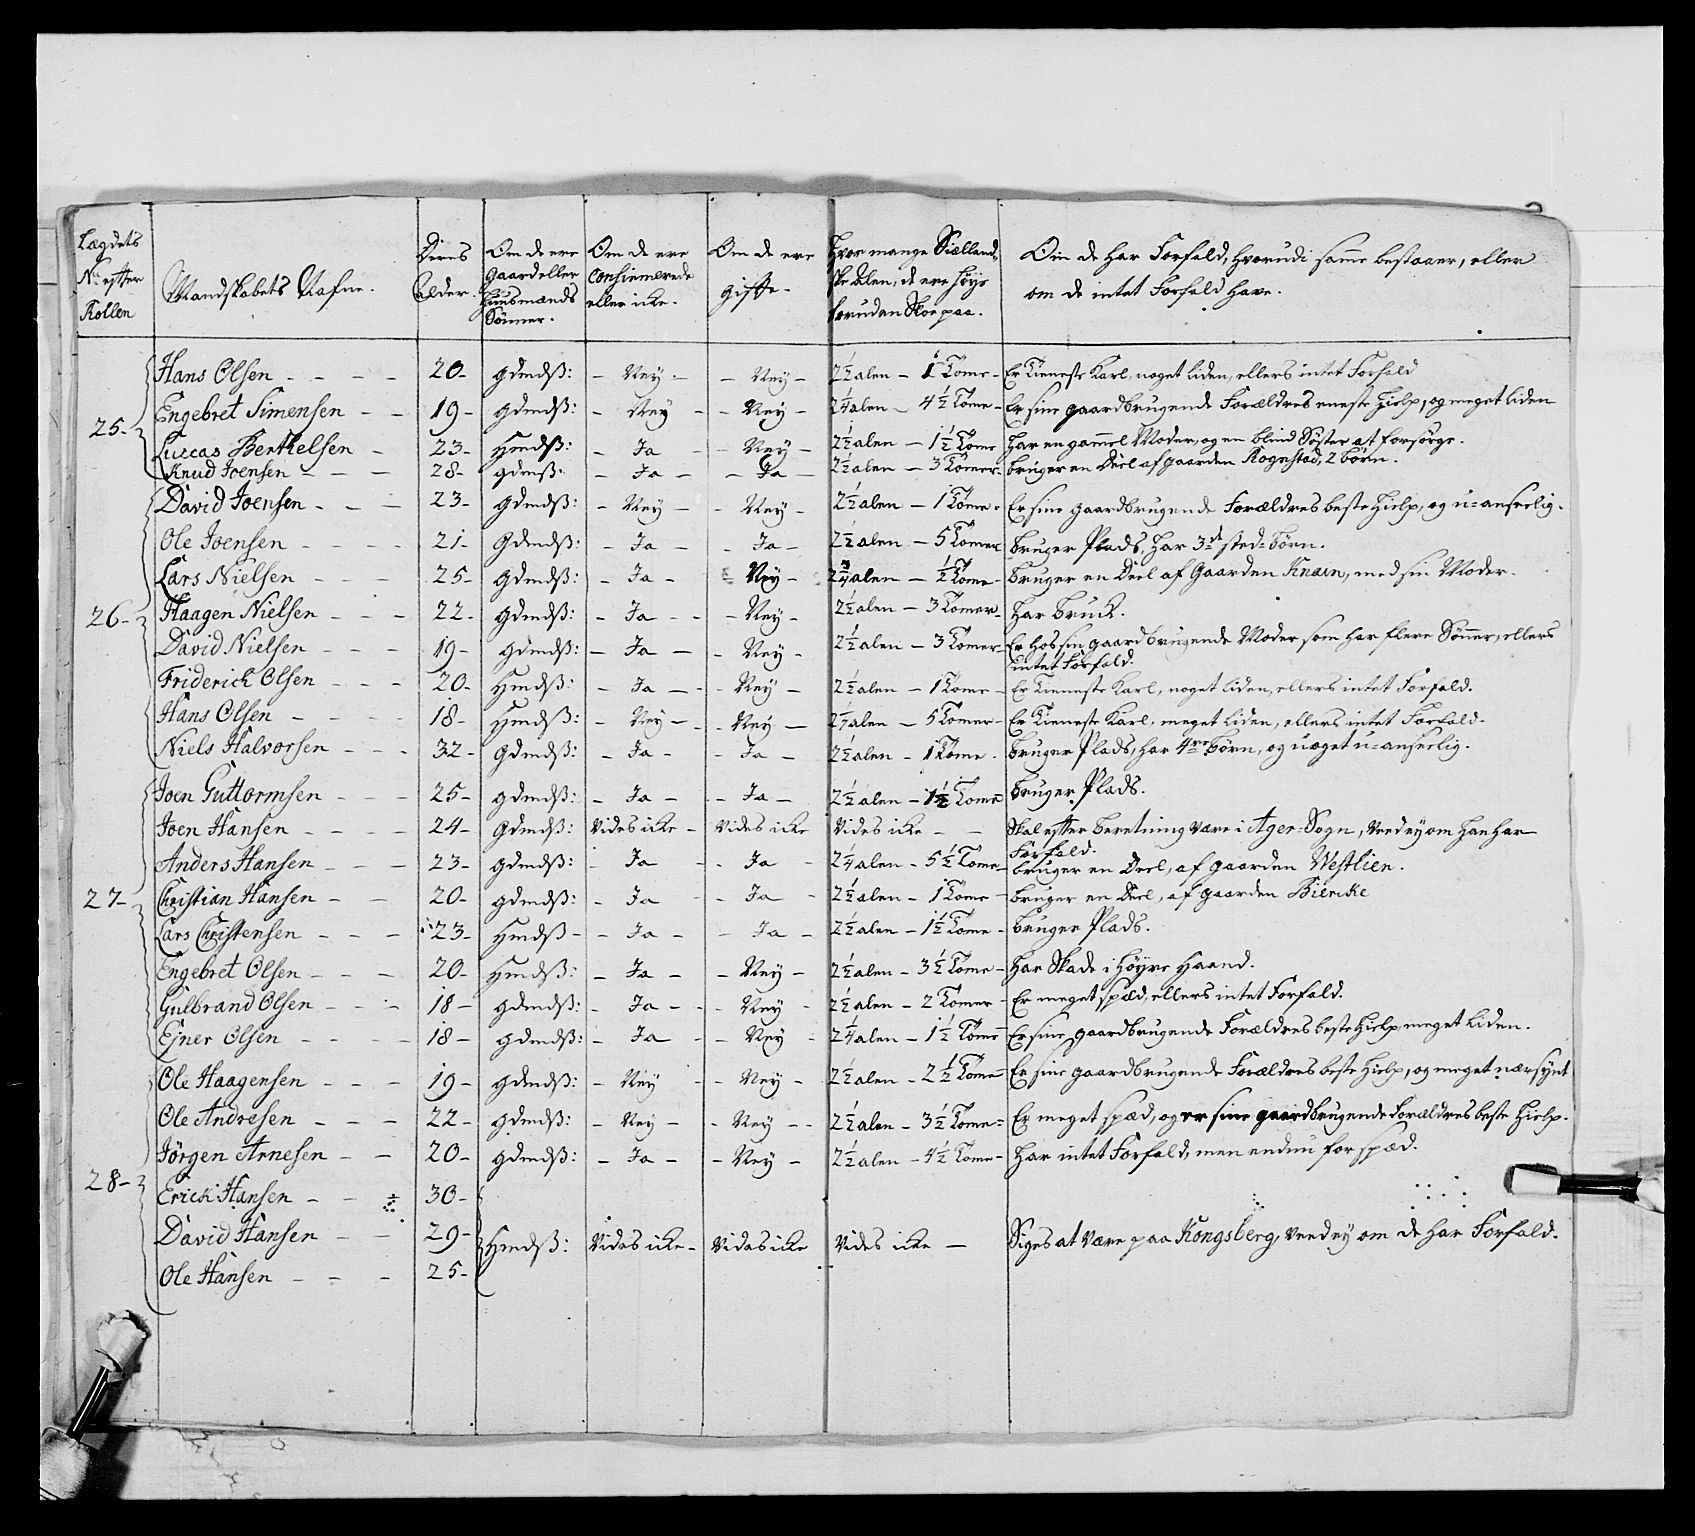 Lægdets
N: efter
Rollen
Mandskabets Nafne.
Deres
Alder.
Om de ere
Gaard eller
Huusmænds
Sönner.
Om de ere
Confirmerede
eller icke.
Om de ere
gifte.
Hvor mange Siælland,
ske Alen, de ere höye
foruden Skoe paa.
Om de har Forfald, hvorudi samme bestaaer, eller
om de intet Forfald have.
25-
Hans Olsen - - - - 20- gdmdß: - Ney - - Ney - 2½ alen - 1 Tome - Er Tieneste Karl, noget liden, ellers intet Forfald
Engebret Simensen - - 19- gdmdß: - Ney - - Ney - 2¼ alen - 4½ Tome - Er sine gaardbrugende Forældres eneste Hielp, og meget liden
Luccas Berthelsen - 23- Hmdß: - Ja - - Ney - 2½ alen - 1½ Tome har en gammel Moder, og en blind Söster at forsörge.
Knud Joensen - - - 28- gdmß: - Ja - - Ja - 2½ alen - 3 Tomer - bruger en Deel af gaarden Rognstad, 2 börn.
26-
David Joensen - - - 23- gdmdß: - Ney - - Ney - 2½ alen - 1 Tome - Er sine gaardbrugende Forældres beste Hielp, og u=anseelig.
Ole Joensen - - - - 21- Gdmdß: - Ja - - Ja - 2½ alen - 5 Tomer bruger Plads, har 3de sted=börn.
Lars Nielsen - - - 25- gdmdß: - Ja - Ney - 2¾ alen - ½ Tome - bruger en Deel af Gaarden Knarn, med sin Moder.
Haagen Nielsen - - - 22- gdmdß: - Ja - - - Ney - 2½ alen - 3 Tomer - har bruck.
David Nielsen - - - 19- gdmdß: - Ja - - Ney - 2½ alen - 3 Tomer - Er hos sin gaardbrugende Moder som har flere Sönner, ellers
intet Forfald.
Friderich Olsen - - - 20- Hmdß: - Ja - - - Ney - 2½ alen - 1 Tome - Er Tieneste Karl, noget liden, ellers intet Forfald.
Hans Olsen - - - - 18- Hmdß: - Ney - - Ney - 2¼ alen - 5 Tomer - Er Tieneste Karl, meget liden, ellers intet Forfald.
Niels Halvorsen - - - 32- gdmdß: - Ja - - Ja - 2½ alen - 1 Tome - bruger Plads, har 4re börn, og noget u=anseelig.
27-
Joen Guttormsen - - - 25- gdmdß: - Ja - - Ja - 2½ alen - 1½ Tome bruger Plads.
Joen Hansen - - - - 24- gdmdß: Vides icke - Vides icke Vides icke - - Skal efter beretning være i Ager=Sogn, veed ey om han har
Forfald.
Anders Hansen - - - 23- gdmdß: - Ja - - Ja - 2¼ alen - 5½ Tome - bruger en Deel, af gaarden Westlien.
Christian Hansen - - 20- gdmdß: - Ja - - Ja - 2½ alen - 1 Tome - bruger en Deel, af gaarden Biencke
Lars Christensen - - - 23- Hmdß - - Ja - - Ja - 2½ alen - 1½ Tome - bruger Plads.
Engebret Olsen - - - 20- Hmdß: - Ja - - Ney - 2½ alen - 3½ Tome - har Skade i höyre Haand.
Gulbrand Olsen - - - 18- gdmdß: - Ja - - - Ney - 2½ alen - 2 Tomer - Er meget spæd, ellers intet Forfald.
Ejner Olsen - - - - 18- gdmdß: - Ja - - Ney - 2¼ alen - 1½ Tome Er sine gaardbrugende Forældres beste Hielp, meget liden.
28-
Ole Haagensen - - - 19- gdmdß: - Ney - - Ney - 2½ alen - 2½ Tome Er sine gaardbrugende Forældres beste Hielp, og meget nærsynt
Ole Andresen - - - 22- gdmdß: - Ney - - Ney - - 2½ alen - 3½ Tome - Er meget spæd, og er sine gaardbrugende Forældres beste Hielp.
Jörgen Arnesen - - 20- gdmdß: - Ja - - Ney - 2½ alen - 4½ Tome - har intet Forfald, men endnu for spæd.
Erick Hansen - - 30-
David Hansen - - 29- Hmdß: Vides icke - Vides icke Vides icke - Siges at være paa Kongsberg, veed ey om de har Forfald.
Ole Hansen - - - 25-